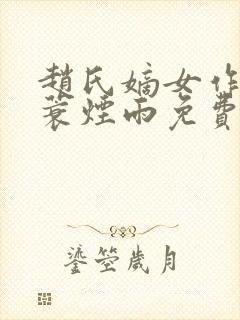 趙氏嫡女作
蓑煙雨免費
鎏箜歲月